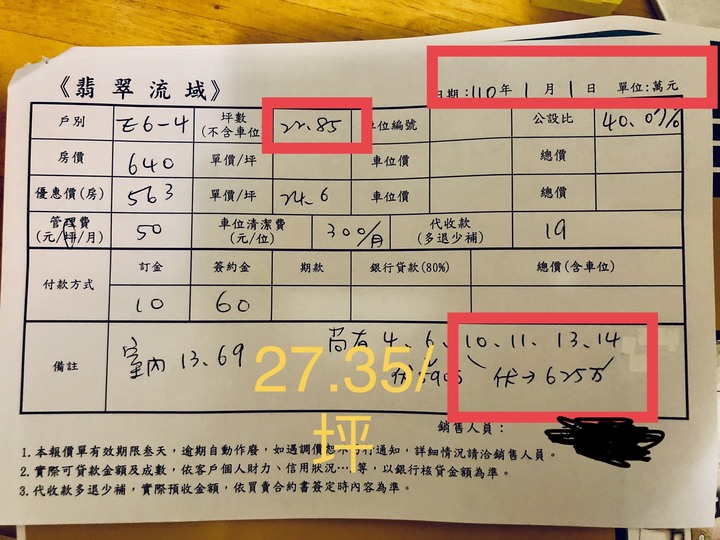 《翡翠流域》
日期：110年 1月 1日 單位:萬元
戶別 E6-4 坪數(不含車位) 22.85 車位編號 公設比 40.07%
房價 640 單價/坪 車位價 總價
優惠價(房) 563 單價/坪 24.6 車位價 總價
管理費(元/坪/月) 50 車位清潔費(元/位) 300/月 代收款(多退少補) 19
付款方式 訂金 簽約金 期款 銀行貸款(80%) 總價(含車位)
10 60
備註 室內 13.69 尚有 4、6、10、11、13、14
→625万
27.35/坪
銷售人員：
1.本報價單有效期限叁天，逾期自動作廢，如遇調價恕不另行通知，詳細情況請洽銷售人員。
2.實際可貸款金額及成數，依客戶個人財力、信用狀況…等，以銀行核貸金額為準。
3.代收款多退少補，實際預收金額，依買賣合約書簽定時內容為準。